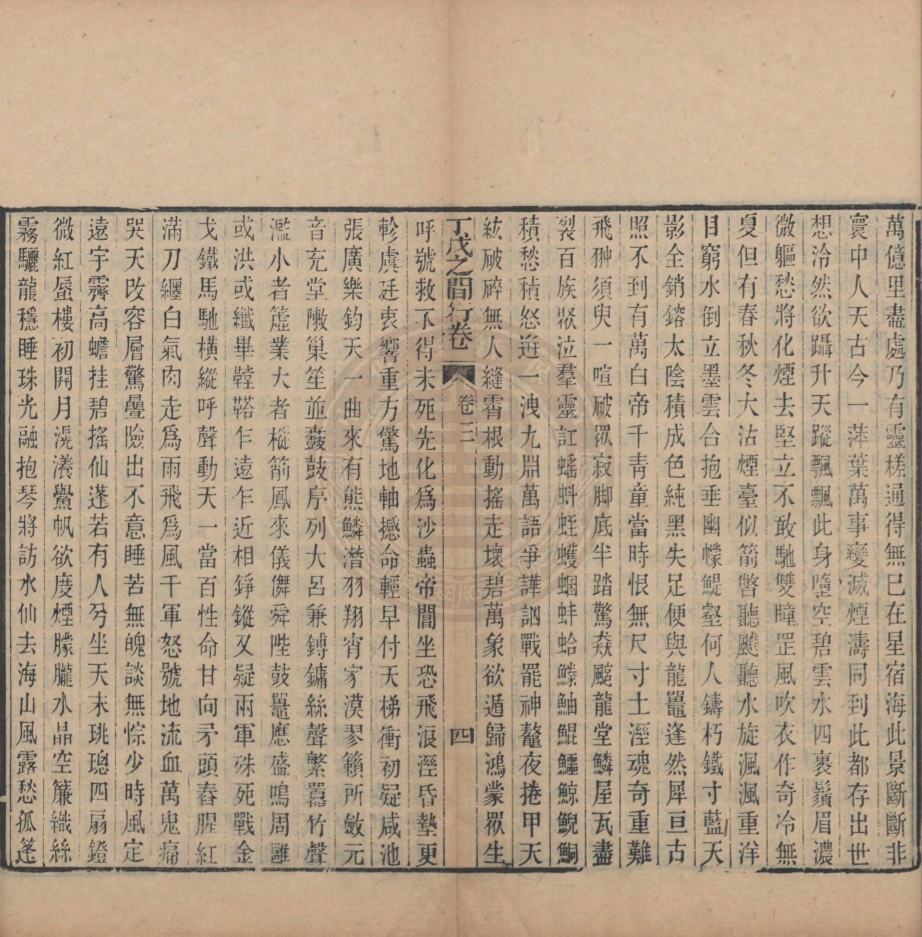 萬億里盡處乃有靈槎通得無已在星宿海此景斷斷非
寰中人天古今一萍葉萬事變滅煙濤同到此都存出世
想泠然欲躡升天蹤飄飄此身墮空碧雲水四裹鬚眉濃
微軀愁將化煙去堅立不敢馳雙瞳罡風吹衣作奇冷無
夏但有春秋冬大沽煙臺似箭瞥聽颼聽水旋渢渢重洋
目窮水倒立墨雲合抱垂幽幪鯷壑何人鑄朽鐵寸藍天
影全銷鎔太陰積成色純黑失足便與龍鼉逢然犀亘古
照不到有萬白帝千靑童當時恨無尺寸土溼魂奇重難
飛翀須臾一喧破眾寂脚底半踏驚猋颷龍堂鱗屋瓦盡
裂百族㷀泣羣靈訌蟠蚪蛭蠖蟈蚌蛤鰷鮋鯤鱷鯨鯢鮦
積愁積怒逬一洩九淵萬語爭譁詾戰罷神鼇夜捲甲天
紘破碎無人縫霄根動搖走壞碧萬象欲遁歸鴻蒙眾生
丁戊之間行卷 卷三 四
呼號救不得未死先化爲沙蟲帝閽坐恐飛浪溼昏墊更
軫虞廷衷響重方驚地軸撼命輕早付天梯衝初疑咸池
張廣樂鈞天一曲來有熊鱗潛羽翔宵寥漠寥籟所敂元
音充堂隞巢笙並鼖鼓序列大呂兼鎛鏞絲聲繁嚻竹聲
濫小者簴業大者樅箭鳳來儀儛舜陛鼓鼉應盛鳴周雝
或洪或纖畢鞺鞳乍遠乍近相錚鏦又疑兩軍殊死戰金
戈鐵馬馳橫縱呼聲動天一當百性命甘向矛頭舂腥紅
滿刀纏白氣肉走爲雨飛爲風千軍怒號地流血萬鬼痛
哭天改容層驚疊險出不意睡苦無魄談無悰少時風定
遠宇霽高蟾挂碧搖仙蓬若有人兮坐天末珧璁四扇鐙
微紅蜃樓初開月滉瀁鷽帆欲度煙朦朧水晶空簾織絲
霧驪龍穩睡珠光融抱琴將訪水仙去海山風露愁孤篷